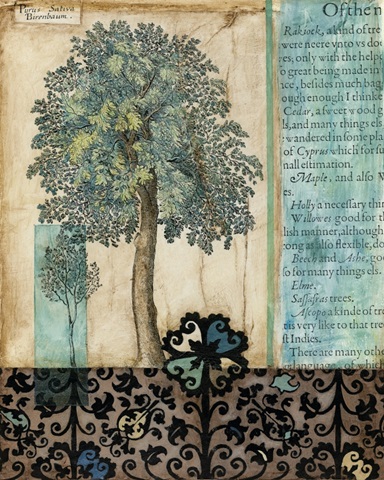 Pyrus Sativa
Birenbaum.
Of the n
Rakiock, a kind of tre
were neere vnto vs dou
yes; only with the helpe
o great being made in
nce, besides much bag
ough enough I thinke
Cedar, a sweet wood g
ls, and many things els
wandered in some pla
of Cyprus which for su
nall estimation.
Maple, and also W
es.
Holly a necessary thin
Willowes good for th
lish manner, although
ong as also flexible, do
Beech and Ashe, goo
so for many things els.
Elme.
Sassafras trees.
Ascopo a kinde of tre
t is very like to that tre
st Indies.
There are many othe
language, of which